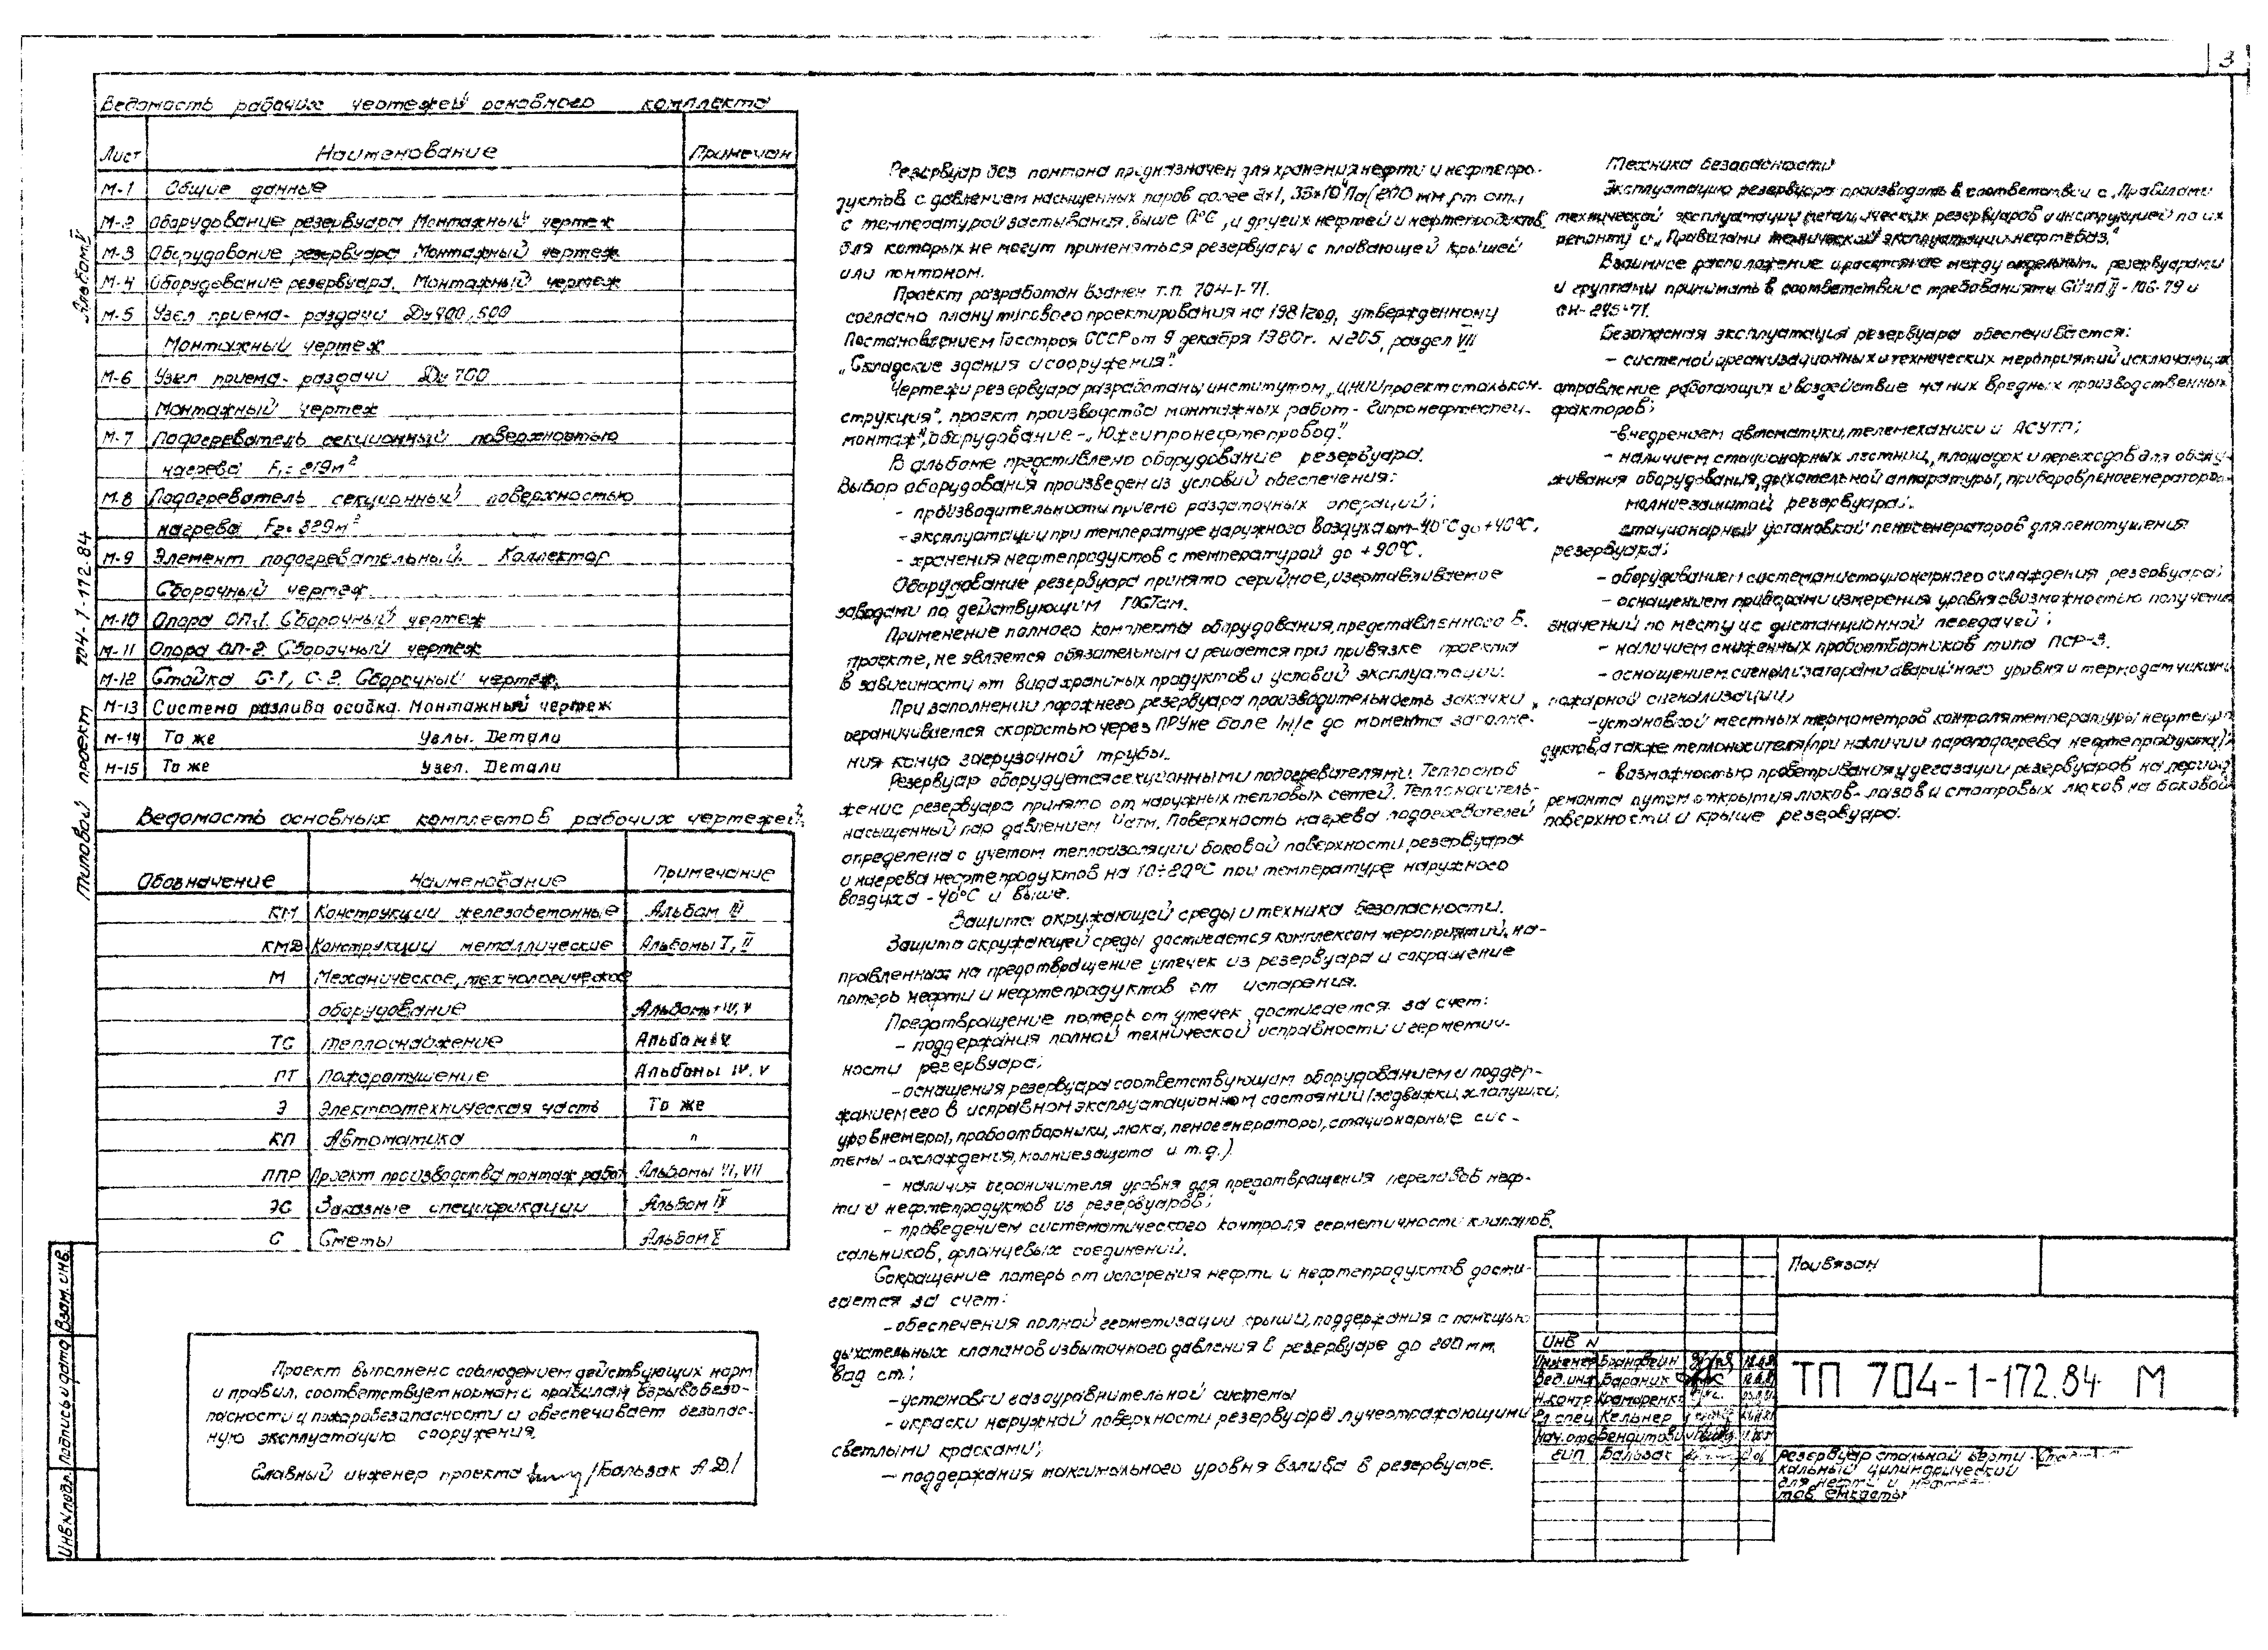 3
Ведомость рабочих чертежей основного комплекта
Лист Наименование Примечан
М-1 Общие данные
М-2 Оборудование резервуара Монтажный чертеж
М-3 Оборудование резервуара Монтажный чертеж
М-4 Оборудование резервуара. Монтажный чертеж
М-5 Узел приема-раздачи Ду 400, 500
Монтажный чертеж
М-6 Узел приема-раздачи Ду 700
Монтажный чертеж
М-7 Подогреватель секционный поверхностью
нагрева F₁=219м²
М-8 Подогреватель секционный поверхностью
нагрева F₂=329м²
М-9 Элемент подогревательный. Коллектор
Сборочный чертеж.
М-10 Опора ОП-1. Сборочный чертеж
М-11 Опора ОП-2. Сборочный чертеж
М-12 Стойка С-1, С-2. Сборочный чертеж.
М-13 Система разлива осадка. Монтажный чертеж
М-14 То же Узлы. Детали
М-15 То же Узел. Детали
Ведомость основных комплектов рабочих чертежей.
Обозначение Наименование Примечание
КМ Конструкции железобетонные Альбом III
КМД Конструкции металлические Альбомы I, II
М Механическое, технологическое
оборудование Альбомы IV, V
ТС Теплоснабжение Альбом
ПТ Пожаротушение Альбомы IV, V
Э Электротехническая часть То же
КП Автоматика "
ППР Проект производства монтаж работ Альбомы VI, VII
ЗС Заказные спецификации Альбом IV
С Сметы Альбом
Проект выполнен с соблюдением действующих норм
и правил, соответствует нормам и правилам взрывобезо-
пасности и пожаробезопасности и обеспечивает безопас-
ную эксплуатацию сооружения.
Главный инженер проекта /Бальзак А.Д./
Альбом V
Типовой проект 704-1-172.84
Инв.№подл. Подпись и дата Взам. инв.
Резервуар без понтона предназначен для хранения нефти и нефтепро-
дуктов с давлением насыщенных паров более 2×1,33×10⁴Па (200 мм рт ст.,
с температурой застывания выше 0°С, и других нефтей и нефтепродуктов,
для которых не могут применяться резервуары с плавающей крышей
или понтоном.
Проект разработан взамен т.п. 704-1-71.
согласно плану типового проектирования на 1981 год, утвержденному
Постановлением Госстроя СССР от 9 декабря 1980г. N205, раздел VII
„Складские здания и сооружения".
Чертежи резервуара разработаны институтом „ЦНИИпроектсталькон-
струкция", проект производства монтажных работ - Гипронефтеспец-
монтаж", оборудование - „Южгипронефтепровод".
В альбоме представлено оборудование резервуара.
Выбор оборудования произведен из условий обеспечения:
- производительности приемо раздаточных операций;
- эксплуатации при температуре наружного воздуха от -40°С до +40°С,
- хранения нефтепродуктов с температурой до +90°С.
Оборудование резервуара принято серийное, изготавливаемое
заводами по действующим ГОСТам.
Применение полного комплекта оборудования, представленного в
проекте, не является обязательным и решается при привязке проекта
в зависимости от вида хранимых продуктов и условий эксплуатации.
При заполнении порожнего резервуара производительность закачки
ограничивается скоростью через ПРУ не боле 1м/с до момента заполне-
ния конца загрузочной трубы.
Резервуар оборудуется секционными подогревателями. Теплоснаб
жение резервуара принято от наружных тепловых сетей. Теплоноситель-
насыщенный пар давлением 4атм. Поверхность нагрева подогревателей
определена с учетом теплоизоляции боковой поверхности резервуара
и нагрева нефтепродуктов на 10÷20°С при температуре наружного
воздуха -40°С и выше.
Защита окружающей среды и техника безопасности.
Защита окружающей среды достигается комплексом мероприятий, на-
правленных на предотвращение утечек из резервуара и сокращение
потерь нефти и нефтепродуктов от испарения.
Предотвращение потерь от утечек достигается за счет:
- поддержания полной технической исправности и герметич-
ности резервуара;
- оснащения резервуара соответствующим оборудованием и поддер-
жанием его в исправном эксплуатационном состоянии (задвижки, хлопушки,
уровнемеры, пробоотборники, люка, пеногенераторы, стационарные сис-
темы охлаждения, молниезащита и т.д.)
- наличия ограничителя уровня для предотвращения переливов неф-
ти и нефтепродуктов из резервуаров;
- проведением систематического контроля герметичности клапанов,
сальников, фланцевых соединений.
Сокращение потерь от испарения нефти и нефтепродуктов дости-
гается за счет:
- обеспечения полной герметизации крыши, поддержания с помощью
дыхательных клапанов избыточного давления в резервуаре до 200 мм.
вод ст.;
- установки газоуравнительной системы
- окраски наружной поверхности резервуара лучеотражающими
светлыми красками;
- поддержания максимального уровня взлива в резервуаре.
Техника безопасности
Эксплуатацию резервуара производить в соответствии с „Правилами
технической эксплуатации металлических резервуаров и инструкцией по их
ремонту" и „Правилами технической эксплуатации нефтебаз."
Взаимное расположение и расстояние между отдельным. резервуарами
и группами принимать в соответствии с требованиями СНиП II-106-79 и
СН-245-71.
Безопасная эксплуатация резервуара обеспечивается:
- системой организационных и технических мероприятий исключающих
отравление работающих и воздействие на них вредных производственных
факторов;
- внедрением автоматики, телемеханики и АСУТП;
- наличием стационарных лестниц, площадок и переходов для обслу-
живания оборудования, дыхательной аппаратуры, приборов, пеногенераторов.
молниезащитой резервуара;
стационарный установкой пеногенераторов для пенотушения
резервуара;
- оборудованием системами стационарного охлаждения резервуара;
- оснащением приборами измерения уровня с возможностью получения
значений по месту и с дистанционной передачей;
- наличием сниженных пробоотборников типа ПСР-3.
- оснащением сигнализаторами аварийного уровня и термодатчиками
пожарной сигнализации,
- установкой местных термометров контроля температуры нефтепро
дуктов, а также теплоносителя (при наличии пароподогрева нефтепродукта);
- возможностью проветривания и дегазации резервуаров на период
ремонта путем открытия люков-лазов и смотровых люков на боковой
поверхности и крыше резервуара.
Привязан
Инв N
Инженер Брандвейн
Вед.инж Бараник
Н.контр Краморенко
Гл.спец Кельнер
Нач.отд Бендитович
ГИП Бальзак
ТП 704-1-172.84 М
Резервуар стальной верти
кальный цилиндрический
для нефти и